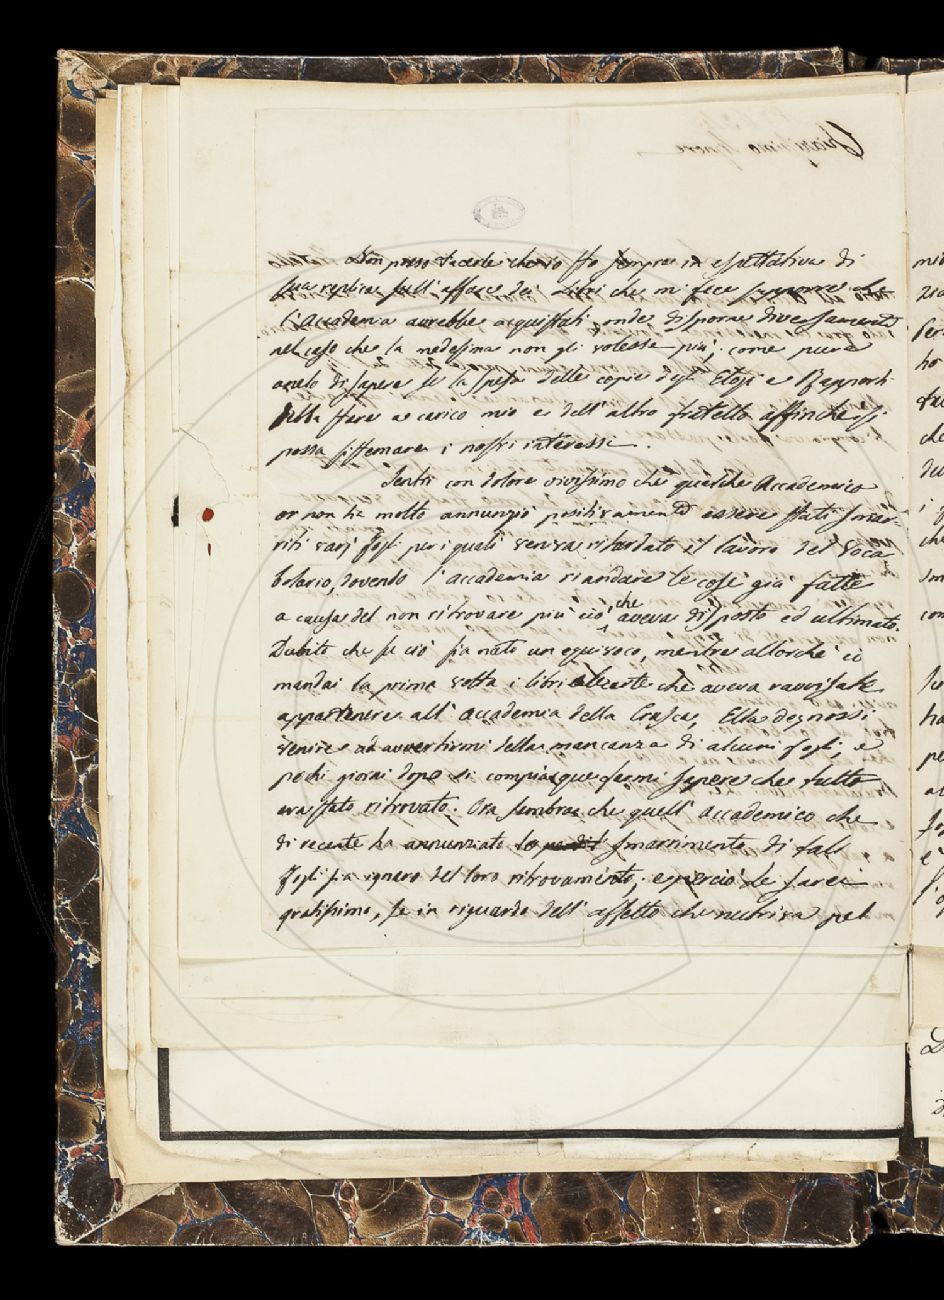 Non posso tacerle che io sto sempre in espettativa di
sua replica sull'affare dei Libri che mi fece supporre che
l'Accademia avrebbe acquistati onde disporne diversamente
nel caso che la medesima non gli volesse più; come pure
anelo di sapere se la spesa delle copie degli Elogi e Rapporti
debba stare a carico mio e dell'altro fratello affinchè si
possa sistemare i nostri interessi.
Sentii con dolore vivissimo che qualche Accademico
or non ha molto annunziò positivamente essere stati smar-
riti varj fogli per i quali veniva ritardato il lavoro del Voca-
bolario, dovendo l'accademia riandare le cose già fatte
a causa del non ritrovare più ciò che aveva disposto ed ultimato.
Dubito che se ciò sia nato un equivoco, mentre allorchè ci
mandai la prima volta i libri e le carte che aveva ravvisate
appartenere all'Accademia della Crusca, Ella degnossi
venire ad avvertirmi della mancanza di alcuni fogli; e
pochi giorni dopo si compiacque farmi sapere che tutto
era stato ritrovato. Ora sembra che quell'Accademico che
di recente ha annunziato lo smarrimento di tali
fogli sia ignaro del loro ritrovamento; e perciò Le sarei
gratissimo, se in riguardo dell'affetto che nutriva pel